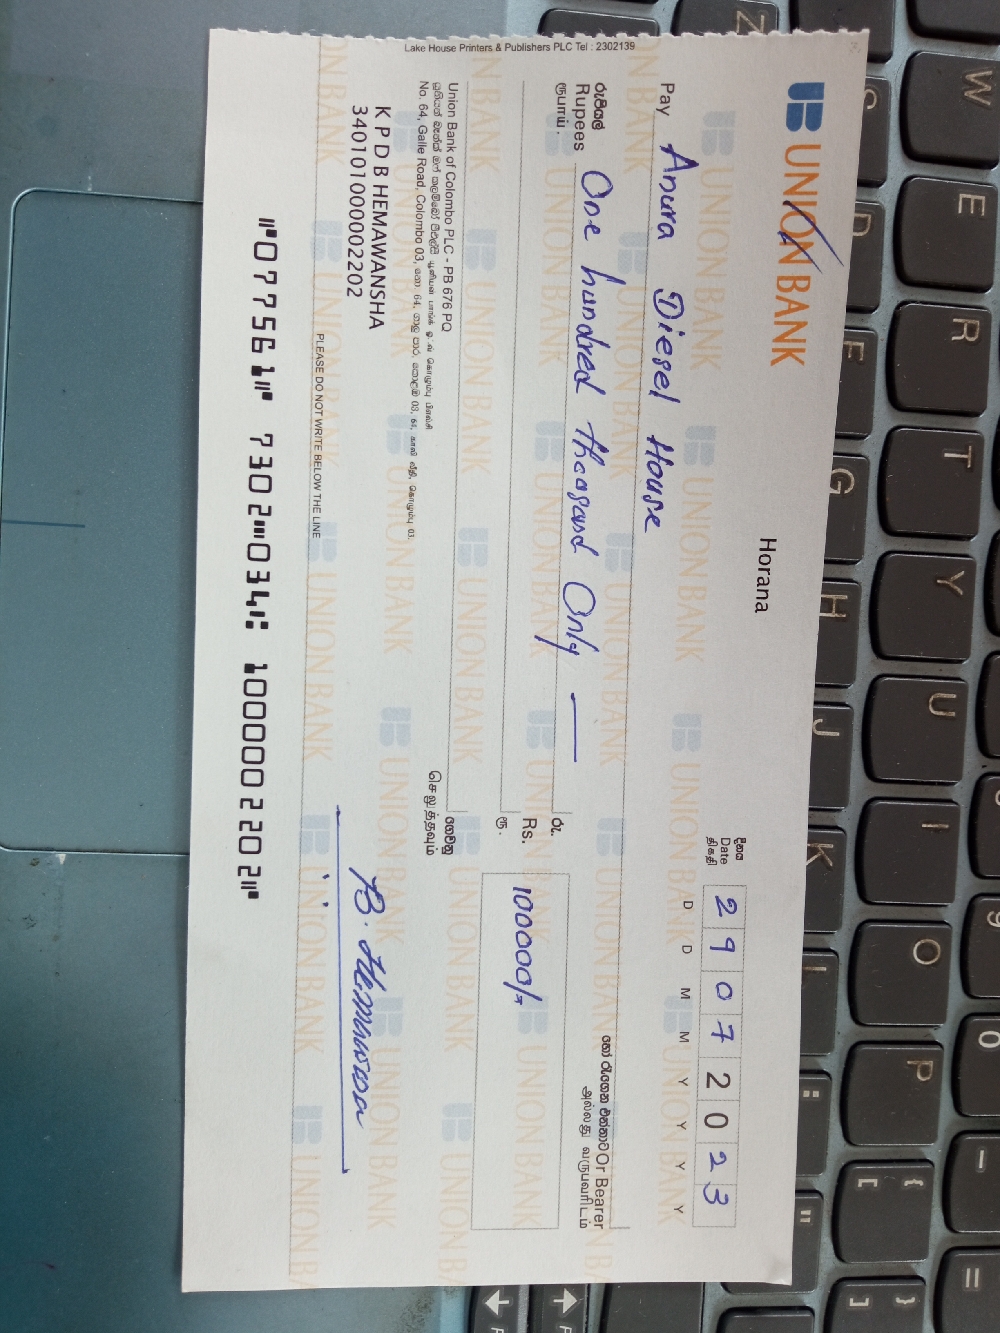 Lake House Printers & Publishers PLC Tel : 2302139
UNION BANK
Horana
දිනය
Date
திகதி
2 9 0 7 2 0 2 3
D D M M Y Y Y Y
Pay Anura Diesel House
හෝ රැගෙන එන්නාට Or Bearer
அல்லது வருபவரிடம்
රුපියල්
Rupees One hundred theasand Only —
ரூபாய்.
රු.
Rs. 100000/=
ரூ.
ගෙවනු
செலுத்தவும்
Union Bank of Colombo PLC - PB 676 PQ
No. 64, Galle Road, Colombo 03,
K P D B HEMAWANSHA
340101000002202
PLEASE DO NOT WRITE BELOW THE LINE
⑈077561⑈ 7302⑉034⑆ 1000002202⑈